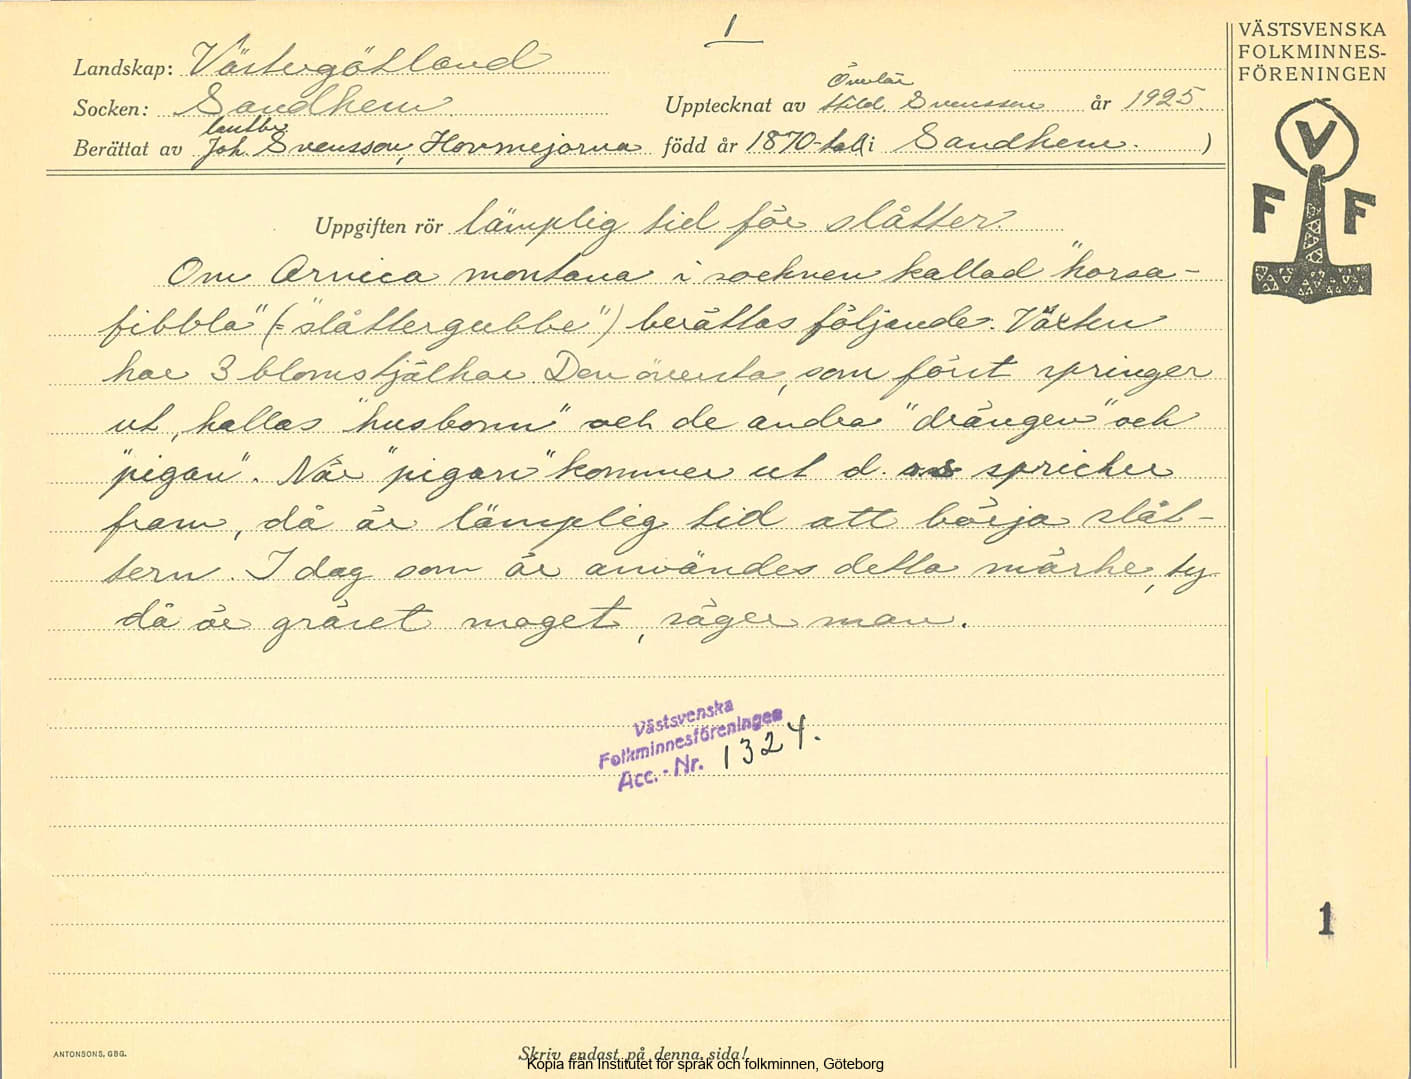 1
VÄSTSVENSKA
FOLKMINNES-
FÖRENINGEN
V
F F
Landskap: Västergötland
Socken: Sandhem
Upptecknat av Överlär Hild. Svensson år 1925.
Berättat av lantbr. Joh. Svensson, Hovmejorna född år 1870-tal i Sandhem. )
Uppgiften rör lämplig tid för slåtter.
Om Arnica montana i socknen kallad "horsa-
fibbla" (="slåttergubbe") berättas följande. Växten
har 3 blomstjälkar. Den översta, som först springer
ut, kallas "husbonn" och de andra "drängen" och
"pigan". När "pigan" kommer ut d. v. s. spricker
fram, då är lämplig tid att börja slåt-
tern. I dag som är användes detta märke, ty
då är gräset moget, säger man.
Västsvenska
Folkminnesföreningen
Acc. - Nr. 1324.
1
ANTONSONS, GBG.
Skriv endast på denna sida!
Kopia från Institutet för språk och folkminnen, Göteborg